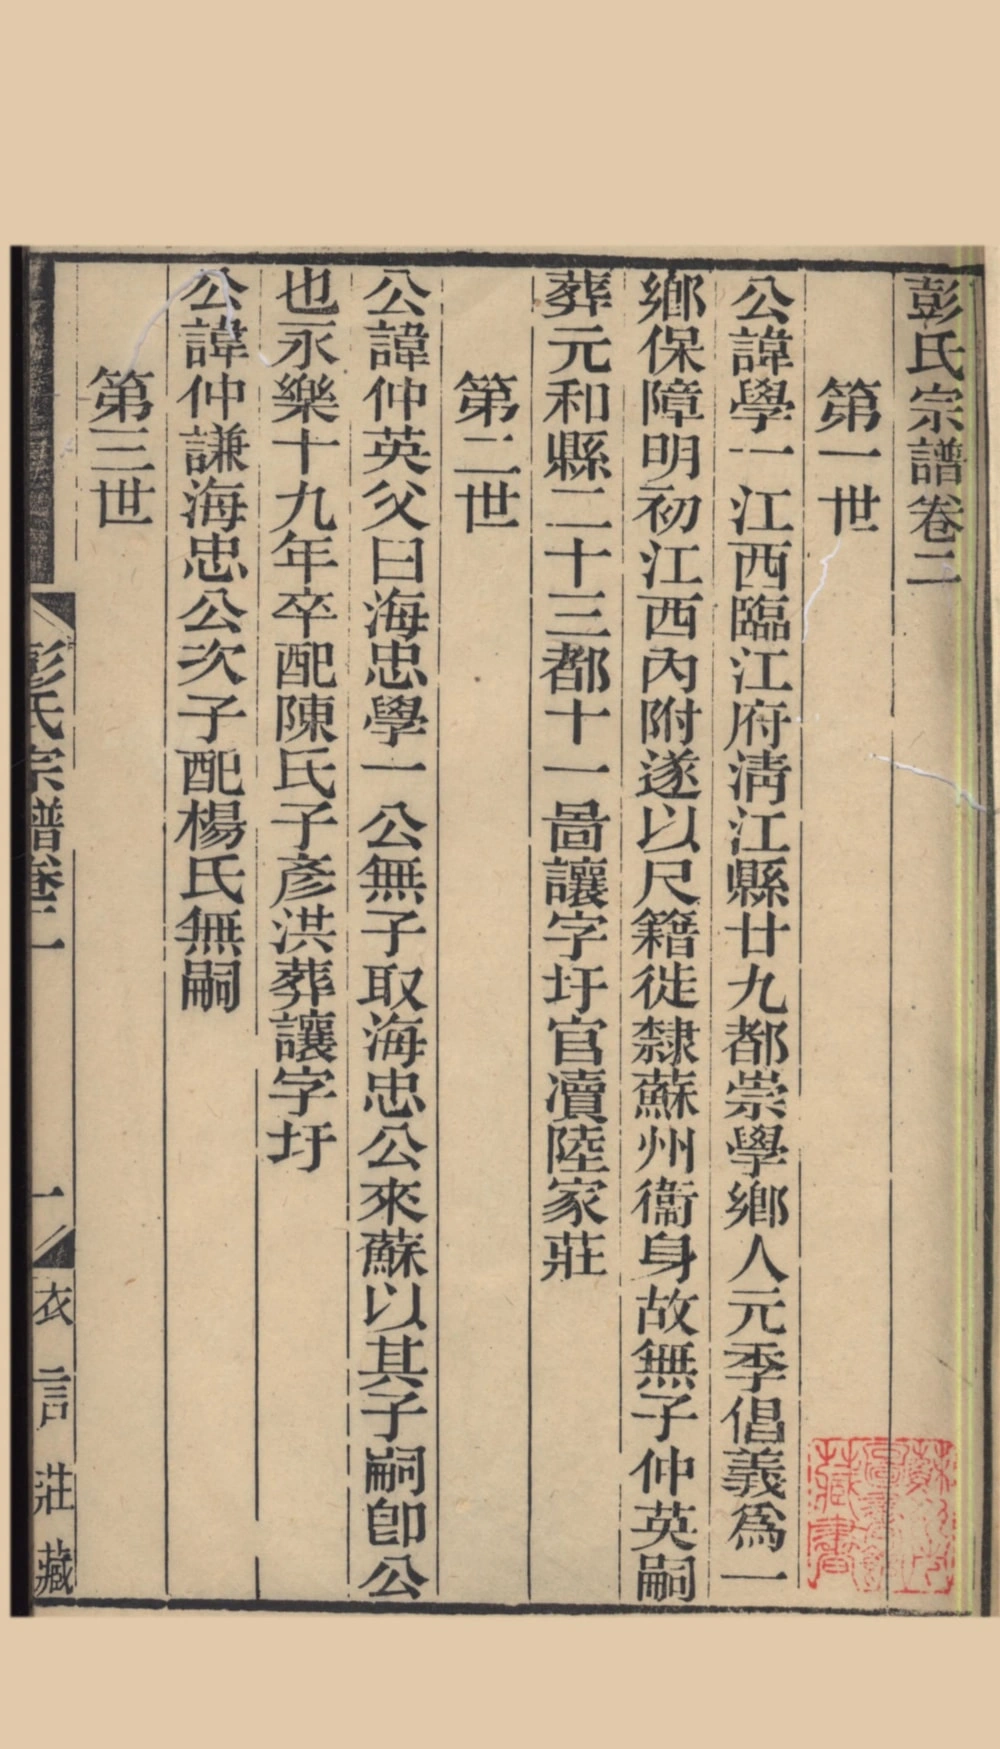 彭氏宗譜卷二
第一世
公諱學一江西臨江府淸江縣廿九都崇學鄕人元季倡義爲一
鄕保障明初江西內附遂以尺籍徙隸蘇州衞身故無子仲英嗣
葬元和縣二十三都十一啚讓字圩官瀆陸家莊
第二世
公諱仲英父曰海忠學一公無子取海忠公來蘇以其子嗣卽公
也永樂十九年卒配陳氏子彥洪葬讓字圩
公諱仲謙海忠公次子配楊氏無嗣
第三世
彭氏宗譜卷二
一
衣言莊藏
藏書